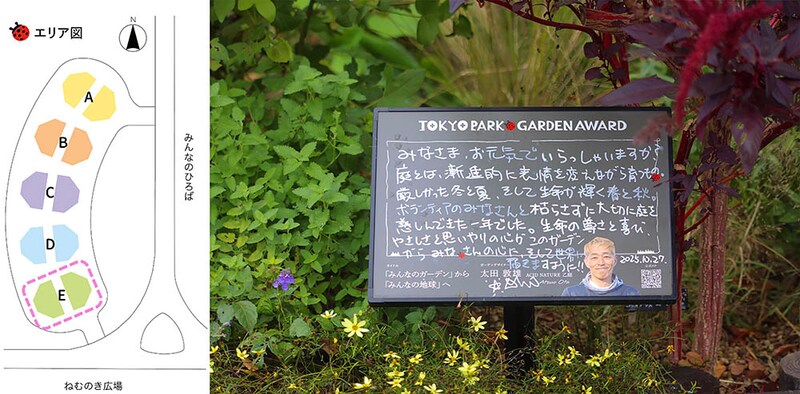 エリア図
N
A
B
C
D
E
みんなのひろば
ねむのき広場
TOKYO PARK GARDEN AWARD
みなさま、お元気でいらっしゃいますか。
庭とは、漸進的に表情を変えながら育つもの。
厳しかった冬と夏、そして生命が輝く春と秋。
ボランティアのみなさんと枯らさずに大切に庭を
慈しんできた一年でした。生命の尊さと喜び、
やさしさと思いやりの心がこのガーデン
からみなさんの心に、そして世界
届きますように!!
2025.10.27.
「みんなのガーデン」から
「みんなの地球」へ
太田 敦雄
ACID NATURE 乙庭
Atsuo Ota